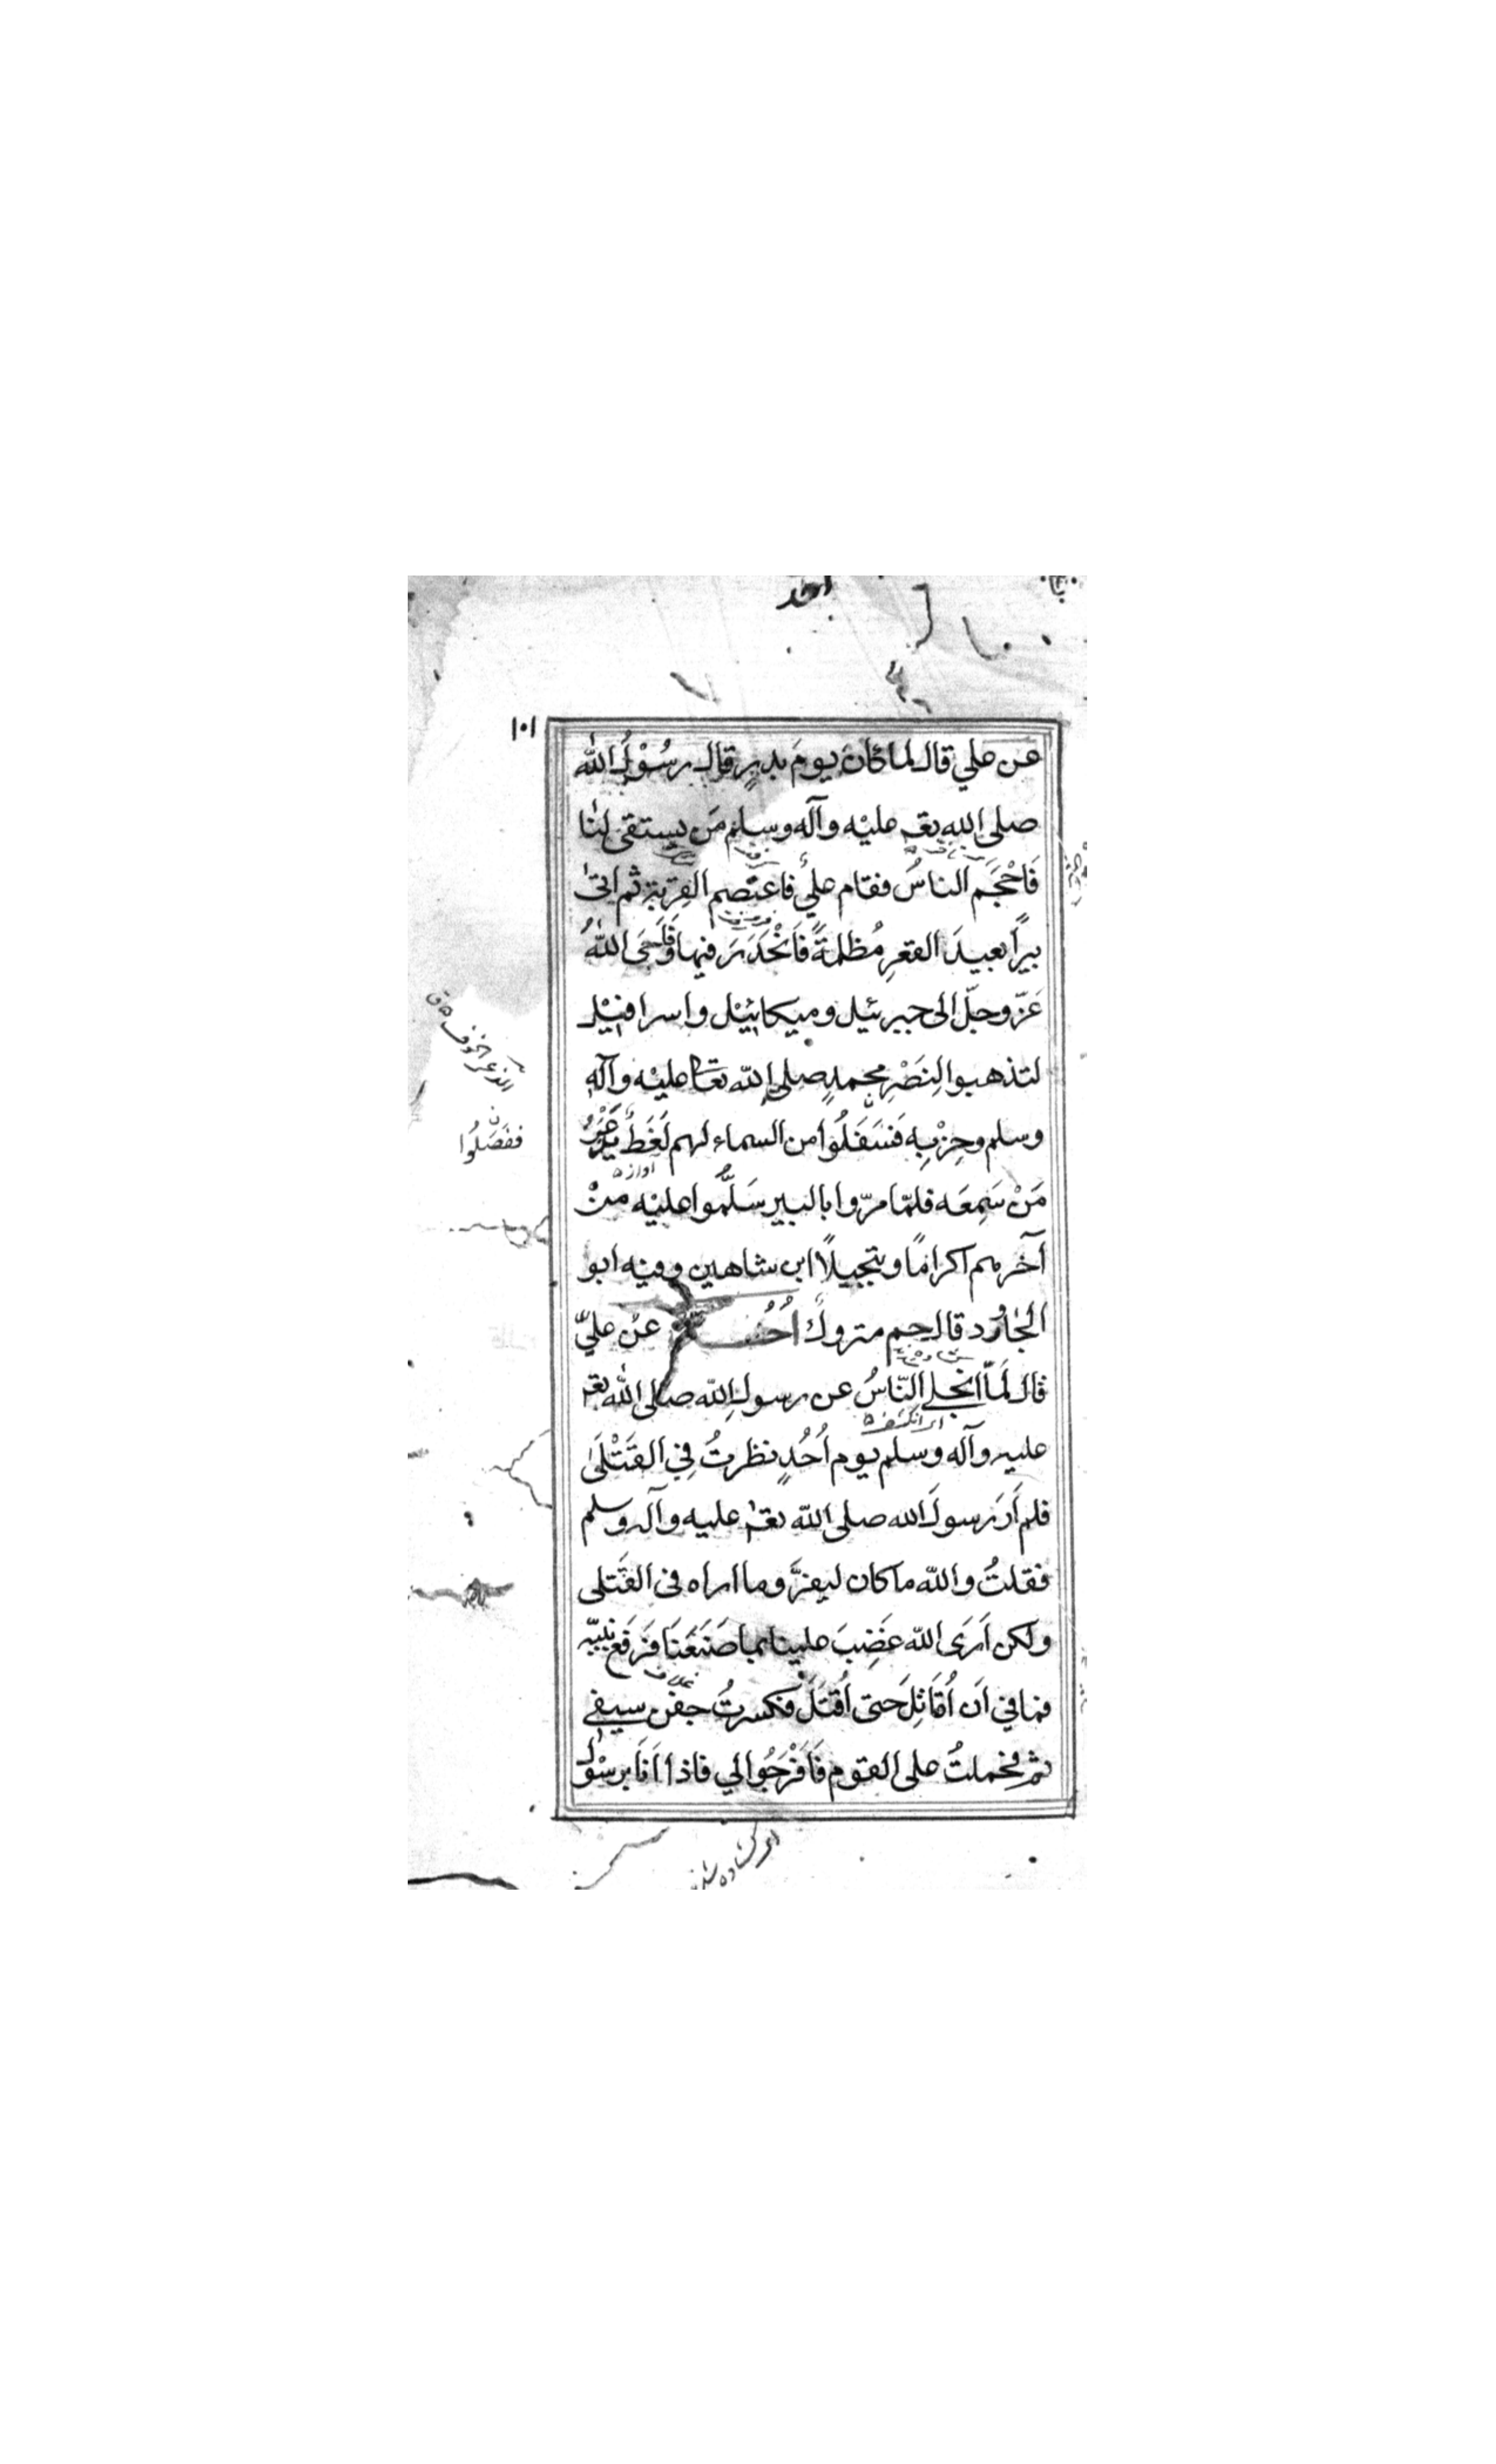 ١٠١
عن علي قال لما كان يومَ بدرٍ قال رسُوْلُ اللّٰه
صلى اللهِ تعـ عليْه وآلَه وسلم مَن يستقى لنا
فَاحْجَمَ الناسُ فقام عليٌ فاعتصم القربة ثم اتىٰ
بيرًا بعيدَ القعرِ مُظلمةً فَانْحَدَرَ فيها فَاَوحَى اللّٰهُ
عَزّ وجلّ الى جبرئيل وميكائيْل واسرافيْل
لتذهبوا لِنَصْرِ محمدٍ صلى اللّه تعـا عليْه وآلَه
وسلم وحِزْبِه فَسَفَلُوا من السماء لهم لَغَطٌ يَذْعَرُ
مَنْ سَمِعَه فلمّا مرّوا بالبير سَلَّمُوا عليْه منْ
آخرهم اكرامًا وتبجيلًا ابن شاهين وفيه ابو
الجارود قال حم متروكٌ اُحُد عن عليّ
قال لَمّا انجلى النّاسُ عن رسولِ اللّه صلى اللّٰه تعـ
عليه وآله وسلم يوم اُحُدٍ نظرتُ فِي القَتْلَىٰ
فلم اَرَ رسولَ الله صلى اللّه تعـ عليه وآله وسلم
فقلتُ واللّه ما كان ليفرَّ وما اراه فى القَتلى
ولكن اَرَى اللّه غَضِبَ علينا بما صَنَعْنَا فَرَفَعَ نبيّه
فما في اَن اُقَاتِلَ حتى اُقتَلَ فكسرتُ جفن سيفى
ثم فحملتُ على القوم فَاَفْرَجُوا لي فاذا اَنَا برسُول
الذعر الخوف ق
ففصَلُوا
اواز
اى انكشف
غلاف
اى كشاده شدند